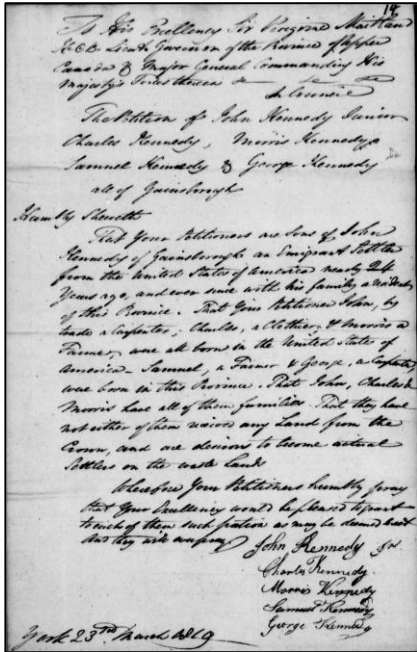 14
To His Excellency Sir Peregrine Maitland
K.C.B. Lieut. Governor of the Province of Upper
Canada & Major General Commanding His
Majesty's Forces therein &c &c &c
In Council
The Petition of John Kennedy Junior
Charles Kennedy, Morris Kennedy
Samuel Kennedy & George Kennedy
all of Gainsborough
Humbly Sheweth
That Your Petitioners are Sons of John
Kennedy of Gainsborough an Emigrant Settler
from the United States of America nearly 24
Years ago, and ever since with his family a resident
of this Province. That Your Petitioner John, by
trade a Carpenter; Charles, a Clothier, & Morris a
Farmer, were all born in the United States of
America - Samuel, a Farmer & George, a Carpenter
were born in this Province. That John, Charles &
Morris have all of them families. That they have
not either of them received any Land from the
Crown, and are desirous to become actual
Settlers on the waste Lands
Wherefore Your Petitioners humbly pray
that Your Excellency would be pleased to grant
to each of them such portion as may be deemed meet
And they will ever pray
John Kennedy Jnr
Charles Kennedy.
Morris Kennedy
Samuel Kennedy
George Kennedy
York 23rd March 1819